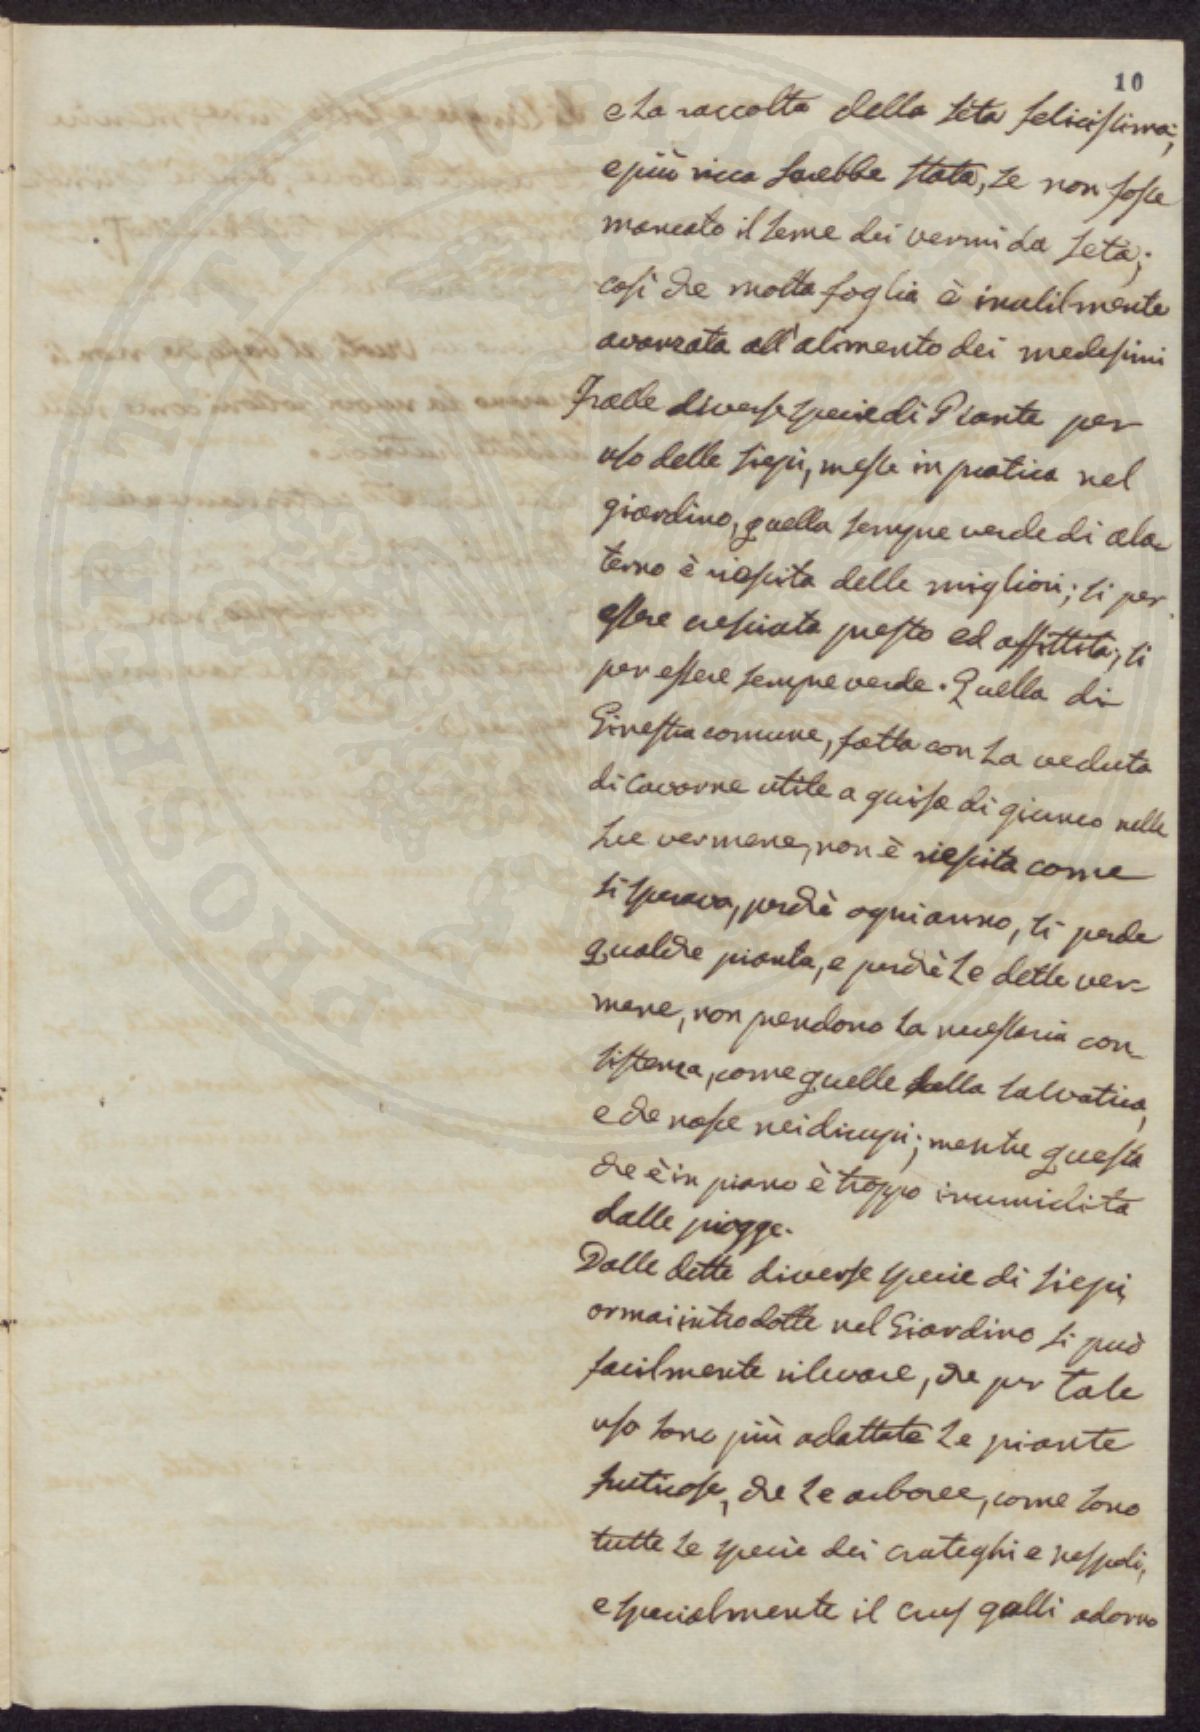 10
e la raccolta della seta felicissima;
e più ricca sarebbe stata, se non fosse
mancato il seme dei vermi da seta;
così che molta foglia è inutilmente
avanzata all'alimento dei medesimi
Tralle diverse specie di Piante per
uso delle siepi, messe in pratica nel
giardino, quella sempre verde di ala-
terno è riescita delle migliori; si per
essere cresciuta presto ed affittita; si
per essere sempre verde. Quella di
Ginestra comune, fatta con la veduta
di cavarne utile a guisa di giunco nelle
sue vermene, non è riescita come
si sperava, perchè ogni anno, si perde
qualche pianta, e perchè le dette ver-
mene, non prendono la necessaria con-
sistenza, come quelle della salvatica,
e che nasce nei dirupi; mentre questa
che è in piano è troppo inumidita
dalle piogge.
Dalle dette diverse specie di siepi,
ormai introdotte nel Giardino si può
facilmente rilevare, che per tale
uso sono più adattate le piante
fruticose, che le arboree, come sono
tutte le specie dei crateghi e nespoli,
e specialmente il crus galli adorno
PROSPERITATI PUBLICAE